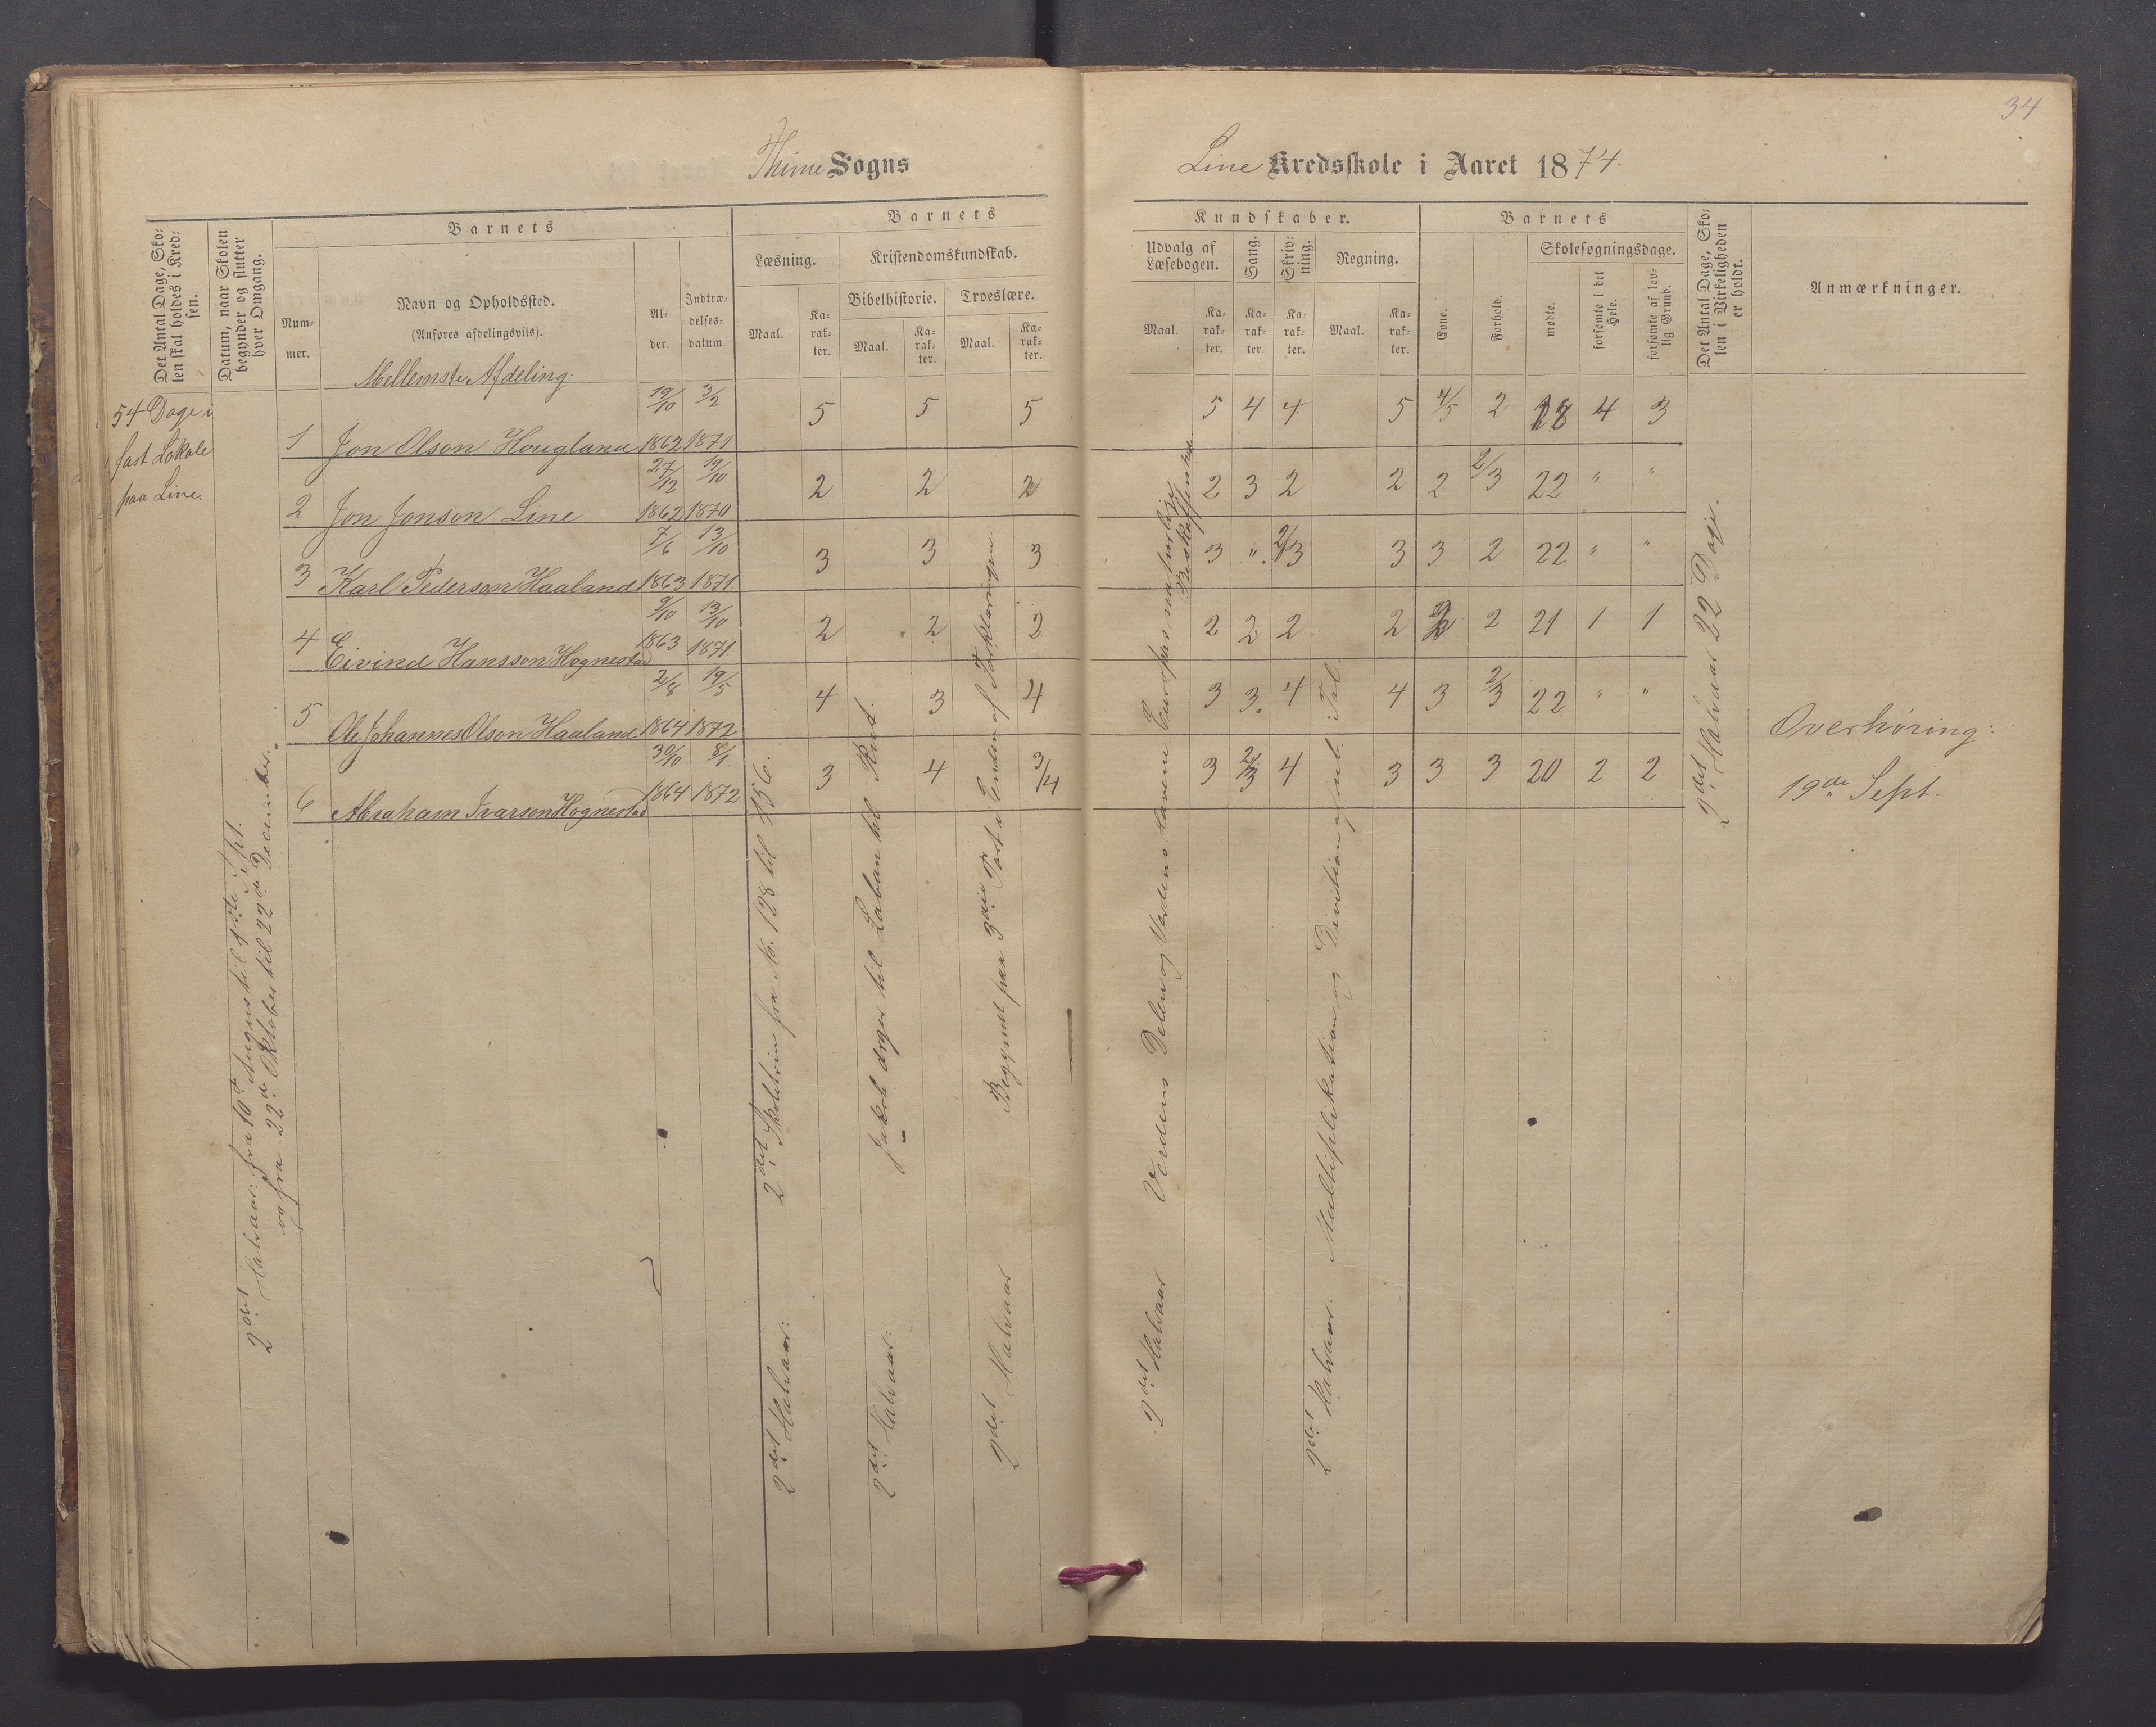 34
Thime Sogns
Line Kredsskole i Aaret 1874.
Det Antal Dage, Sko-
len skal holdes i Kred-
sen.
Datum, naar Skolen
begynder og slutter
hver Omgang.
Barnets
Num-
mer.
Navn og Opholdssted.
(Anføres afdelingsviis).
Al-
der.
Indtræ-
delses-
datum.
Barnets
Læsning.
Kristendomskundskab.
Bibelhistorie. Troeslære.
Maal.
Ka-
rak-
ter.
Maal.
Ka-
rak-
ter.
Maal.
Ka-
rak-
ter.
Kundskaber.
Udvalg af
Læsebogen.
Sang.
Skriv-
ning.
Regning.
Maal.
Ka-
rak-
ter.
Ka-
rak-
ter.
Ka-
rak-
ter.
Maal.
Ka-
rak-
ter.
Barnets
Evne.
Forhold.
Skolesøgningsdage.
mødte.
forsømte i det
Hele.
forsømte af lov-
lig Grund.
Det Antal Dage, Sko-
len i Virkeligheden
er holdt.
Anmærkninger.
Mellemste Afdeling.
54 Dage i
fast Lokale
paa Line.
19/10 3/2 5 5 5 5 4 4 5 4/5 2 18 4 3
1 Jon Olson Hougland 1862 1871
27/12 19/10 2 2 2 2 3 2 2 2 2/3 22 " "
2 Jon Jonson Line 1862 1870
7/6 13/10 3 3 3 3 " 2/3 3 3 2 22 " "
3 Karl Pederson Haaland 1863 1871
9/10 13/10 2 2 2 2 2 2 2 2 2 21 1 1
4 Eivind Hansson Hognestad 1863 1871.
2/8 19/5 4 3 4 3 3. 4 4 3 2/3 22 " "
5 Ole Johannes Olson Haaland 1864 1872
30/10 8/1 3 4 3/4 3 2/3 4 3 3 3 20 2 2
6 Abraham Ivarson Hognestad 1864 1872
2det Halvaar: fra 10de August til 1ste Sept.
og fra 22de Oktober til 22de December.
2det Halvaar: 2det Skoletrin fra No. 128 til 156.
2det Halvaar: Jakob drager til Laban til Rut.
2det Halvaar Begyndt paa 3die Part i Enden af Forklaringen.
2det Halvaar Verdens Dele og Verdens Havene. Europas naturlige
Beskaffenhed
2det Halvaar. Multiplikation og Division af ub. Tal.
2det Halvaar 22 Dage.
Overhøring:
19de Sept.